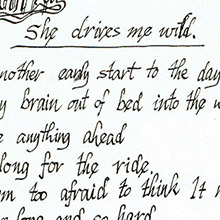 She drives me wild.
nother early start to the day
y brain out of bed into the
e anything ahead
long for the ride.
m too afraid to think It
long and so hard